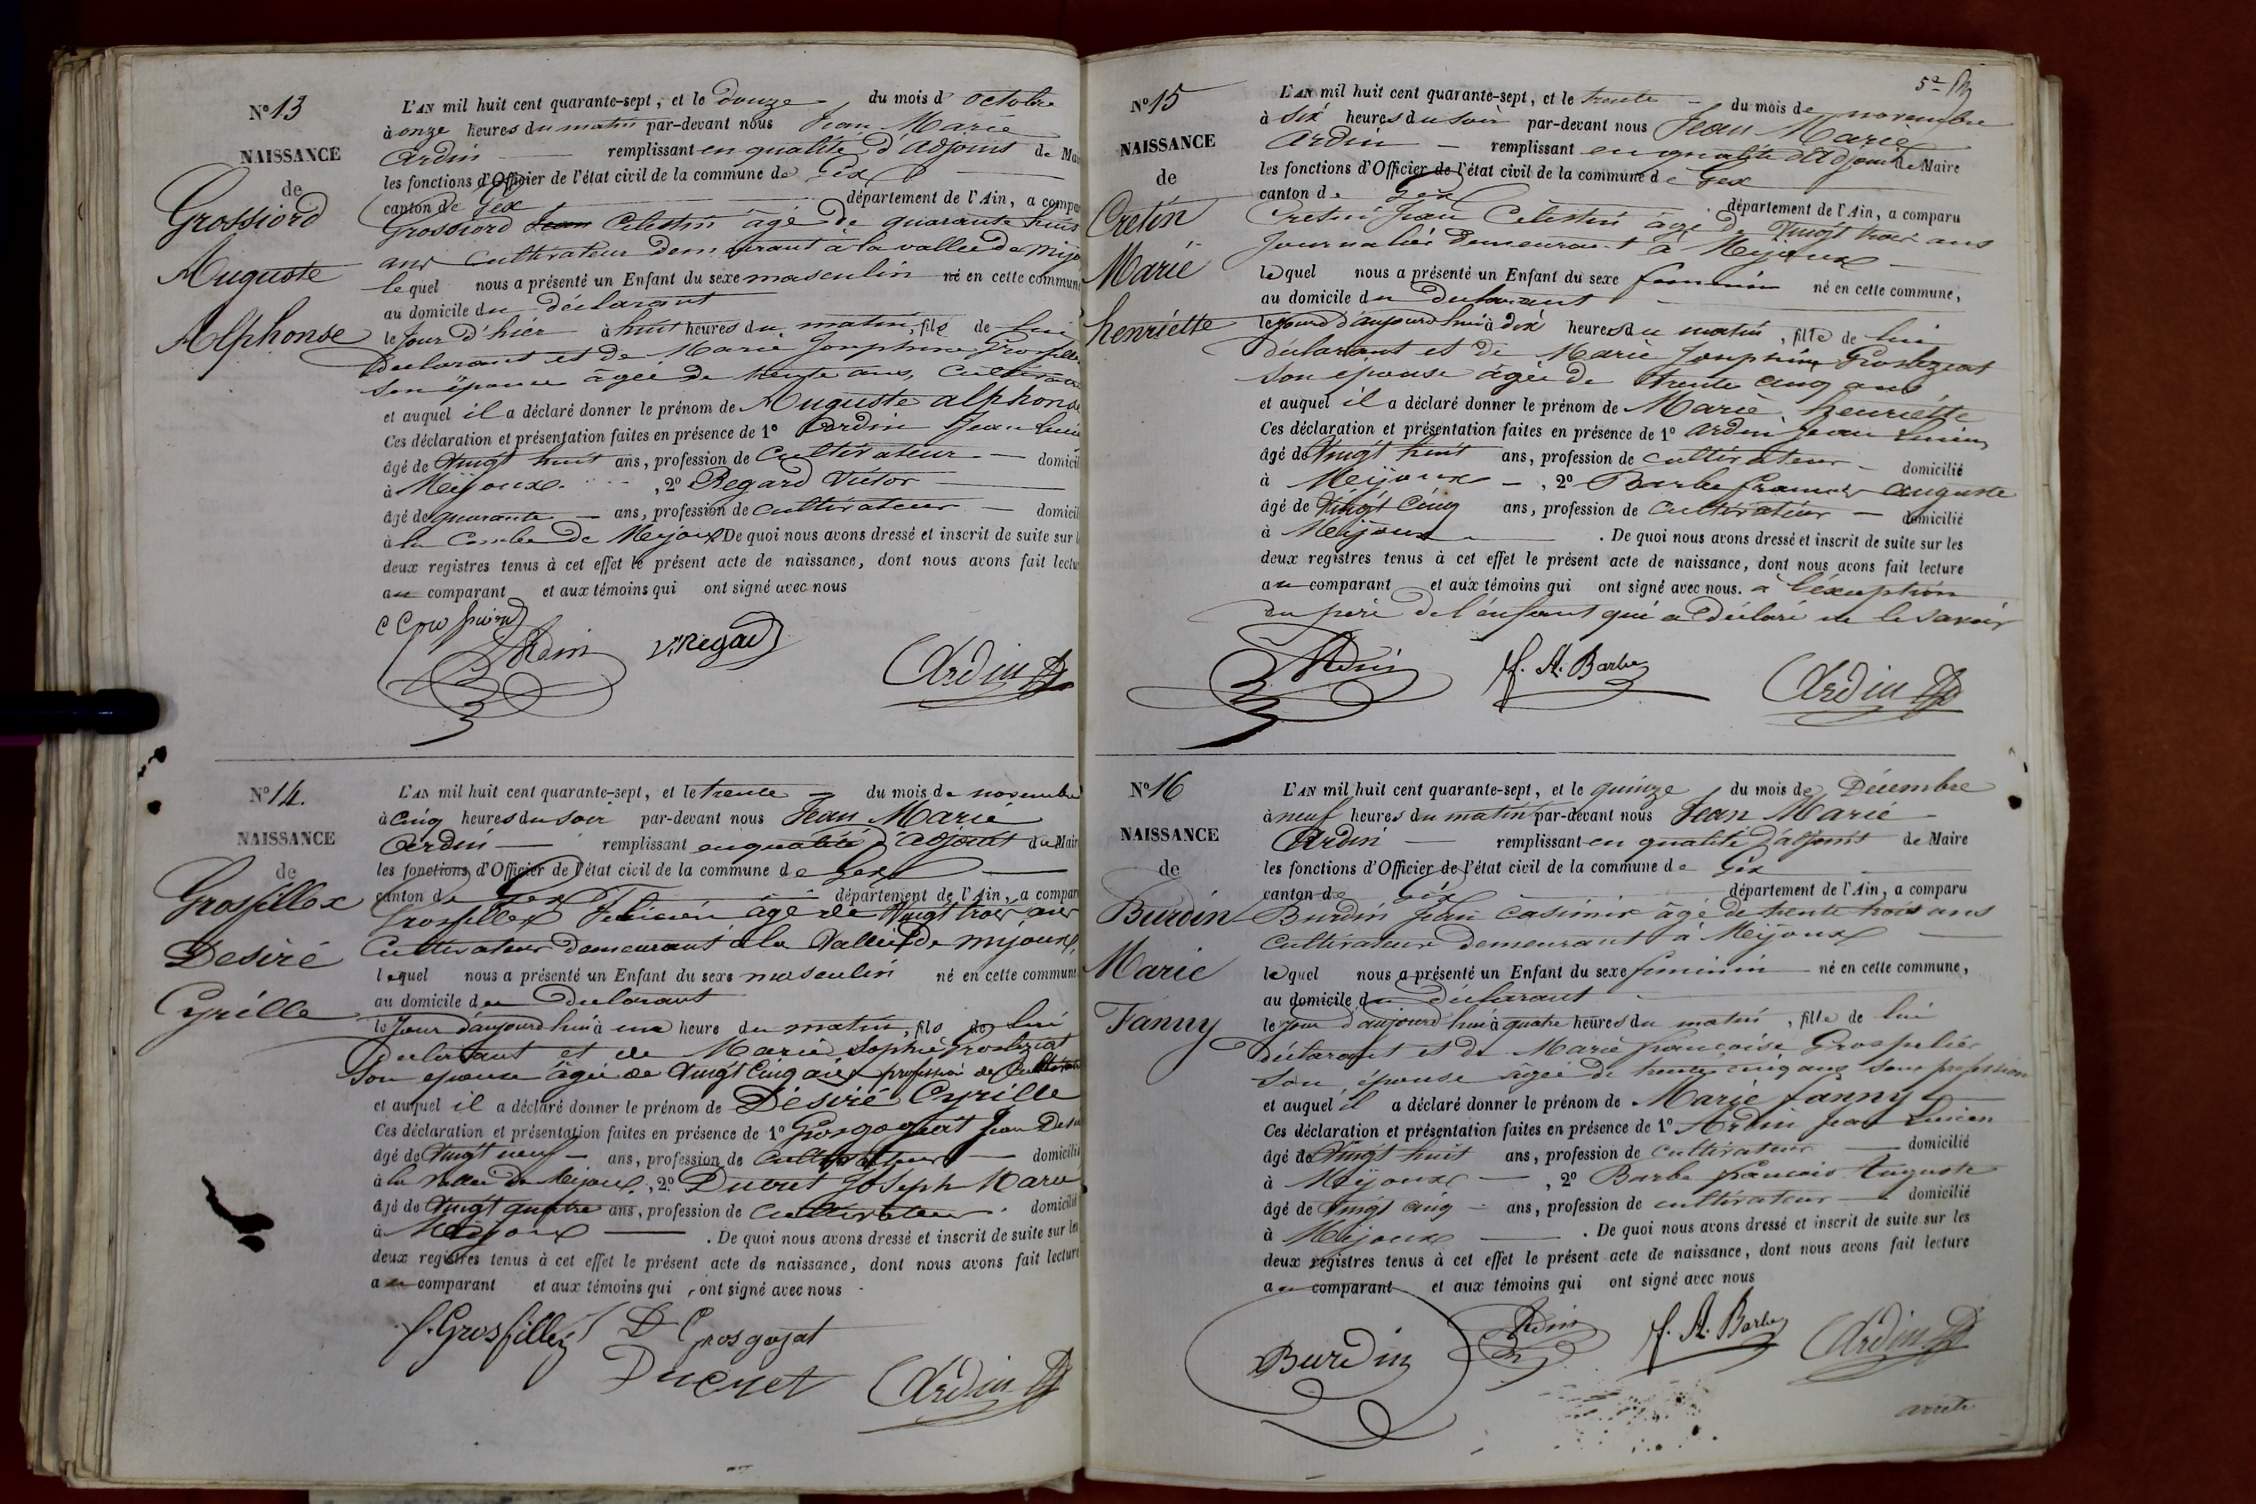 N° 13
NAISSANCE
de
Grossiord
Auguste
Alphonse
L'AN mil huit cent quarante-sept, et le douze du mois d' octobre
à onze heures du matin par-devant nous Jean Marie
Ardin remplissant en qualité d'adjoint de Mai
les fonctions d'Officier de l'état civil de la commune de Gex
canton de Gex département de l'Ain, a compa
Grossiord Jean Celestin agé de quarante huit
ans cultivateur demeurant à la vallée de Mijo
lequel nous a présenté un Enfant du sexe masculin né en cette commune
au domicile du déclarant
le jour d'hier à huit heures du matin, fils de lui
declarant et de Marie Josephine Grosfille
son épouse âgée de trente ans, Cultivat
et auquel il a déclaré donner le prénom de Auguste alphonse
Ces déclaration et présentation faites en présence de 1° Ardin Jean Lucien
âgé de Vingt huit ans, profession de Cultivateur domicil
à Meijoux , 2° Regard Victor
âgé de quarante ans, profession de cultivateur domicil
à la Combe de Mejoux De quoi nous avons dressé et inscrit de suite sur l
deux registres tenus à cet effet le présent acte de naissance, dont nous avons fait lectu
au comparant et aux témoins qui ont signé avec nous
Ardin V. Regad Ardin
N° 14.
NAISSANCE
de
Grosfillex
Desiré
Cyrille
L'AN mil huit cent quarante-sept, et le trente du mois de novembre
à Cinq heures du soir par-devant nous Jean Marie
Ardin remplissant en qualité d'adjoint du Mair
les fonctions d'Officier de l'état civil de la commune de Gex
canton de Gex département de l'Ain, a compar
Grosfillex Felicien âgé de Vingt trois ans
Cultivateur demeurant à la Vallée de mijoux,
lequel nous a présenté un Enfant du sexe masculin né en cette commune
au domicile du Declarant
le Jour d'aujourd'hui à une heure du matin, fils de lui
Declarant et de Marie Sophie Grostezrat
Son epouse âgée de Vingt Cinq ans profession de Cultivat
et auquel il a déclaré donner le prénom de Désiré Cyrille
Ces déclaration et présentation faites en présence de 1° Grosgogeat Jean Desir
âgé de Vingt neuf ans, profession de Cultivateur domicilié
à la Vallée de Meijoux, 2° Ducret Joseph Marie
âgé de Vingt quatre ans, profession de Cultivateur domicilié
à Meijoux . De quoi nous avons dressé et inscrit de suite sur les
deux registres tenus à cet effet le présent acte de naissance, dont nous avons fait lecture
au comparant et aux témoins qui ont signé avec nous
f. Grosfillex D Grosgogat
Ducret Ardin
5e
N° 15
NAISSANCE
de
Cretin
Marie
henriette
L'AN mil huit cent quarante-sept, et le trente du mois de novembre
à six heures du soir par-devant nous Jean Marie
Ardin remplissant en qualité d'Adjoint de Maire
les fonctions d'Officier de l'état civil de la commune de Gex
canton de Gex département de l'Ain, a comparu
Cretin Jean Célestin âgé de Vingt trois ans
Journalier demeurant à Meijoux
lequel nous a présenté un Enfant du sexe feminin né en cette commune,
au domicile du declarant
le jour d'aujourd'hui à dix heures du matin, fille de lui
déclarant et de Marie Josephine Grostezrat
son épouse âgée de trente cinq ans
et auquel il a déclaré donner le prénom de Marie henriette
Ces déclaration et présentation faites en présence de 1° ardin Jean Lucien
âgé de Vingt huit ans, profession de cultivateur domicilié
à Meijoux , 2° Barbe francois auguste
âgé de Vingt Cinq ans, profession de Cultivateur domicilié
à Meijoux . De quoi nous avons dressé et inscrit de suite sur les
deux registres tenus à cet effet le présent acte de naissance, dont nous avons fait lecture
au comparant et aux témoins qui ont signé avec nous. à l'éxception
du pere de l'enfant qui a déclaré ne le savoir
Ardin f. A. Barbe Ardin
N° 16
NAISSANCE
de
Burdin
Marie
Fanny
L'AN mil huit cent quarante-sept, et le quinze du mois de Décembre
à neuf heures du matin par-devant nous Jean Marie
Ardin remplissant en qualité d'adjoint de Maire
les fonctions d'Officier de l'état civil de la commune de Gex
canton de Gex département de l'Ain, a comparu
Burdin Jean Casimir âgé de trente trois ans
cultivateur demeurant à Meijoux
lequel nous a présenté un Enfant du sexe feminin né en cette commune,
au domicile du déclarant
le jour d'aujourd'hui à quatre heures du matin, fille de lui
déclarant et de Marie françoise Grospelier
Son épouse agée de trente cinq ans sans profession
et auquel il a déclaré donner le prénom de Marie fanny
Ces déclaration et présentation faites en présence de 1° Ardin Jean Lucien
âgé de Vingt huit ans, profession de cultivateur domicilié
à Meijoux , 2° Barbe francois Auguste
âgé de Vingt cinq ans, profession de cultivateur domicilié
à Meijoux . De quoi nous avons dressé et inscrit de suite sur les
deux registres tenus à cet effet le présent acte de naissance, dont nous avons fait lecture
au comparant et aux témoins qui ont signé avec nous
Burdin Ardin f. A. Barbe Ardin